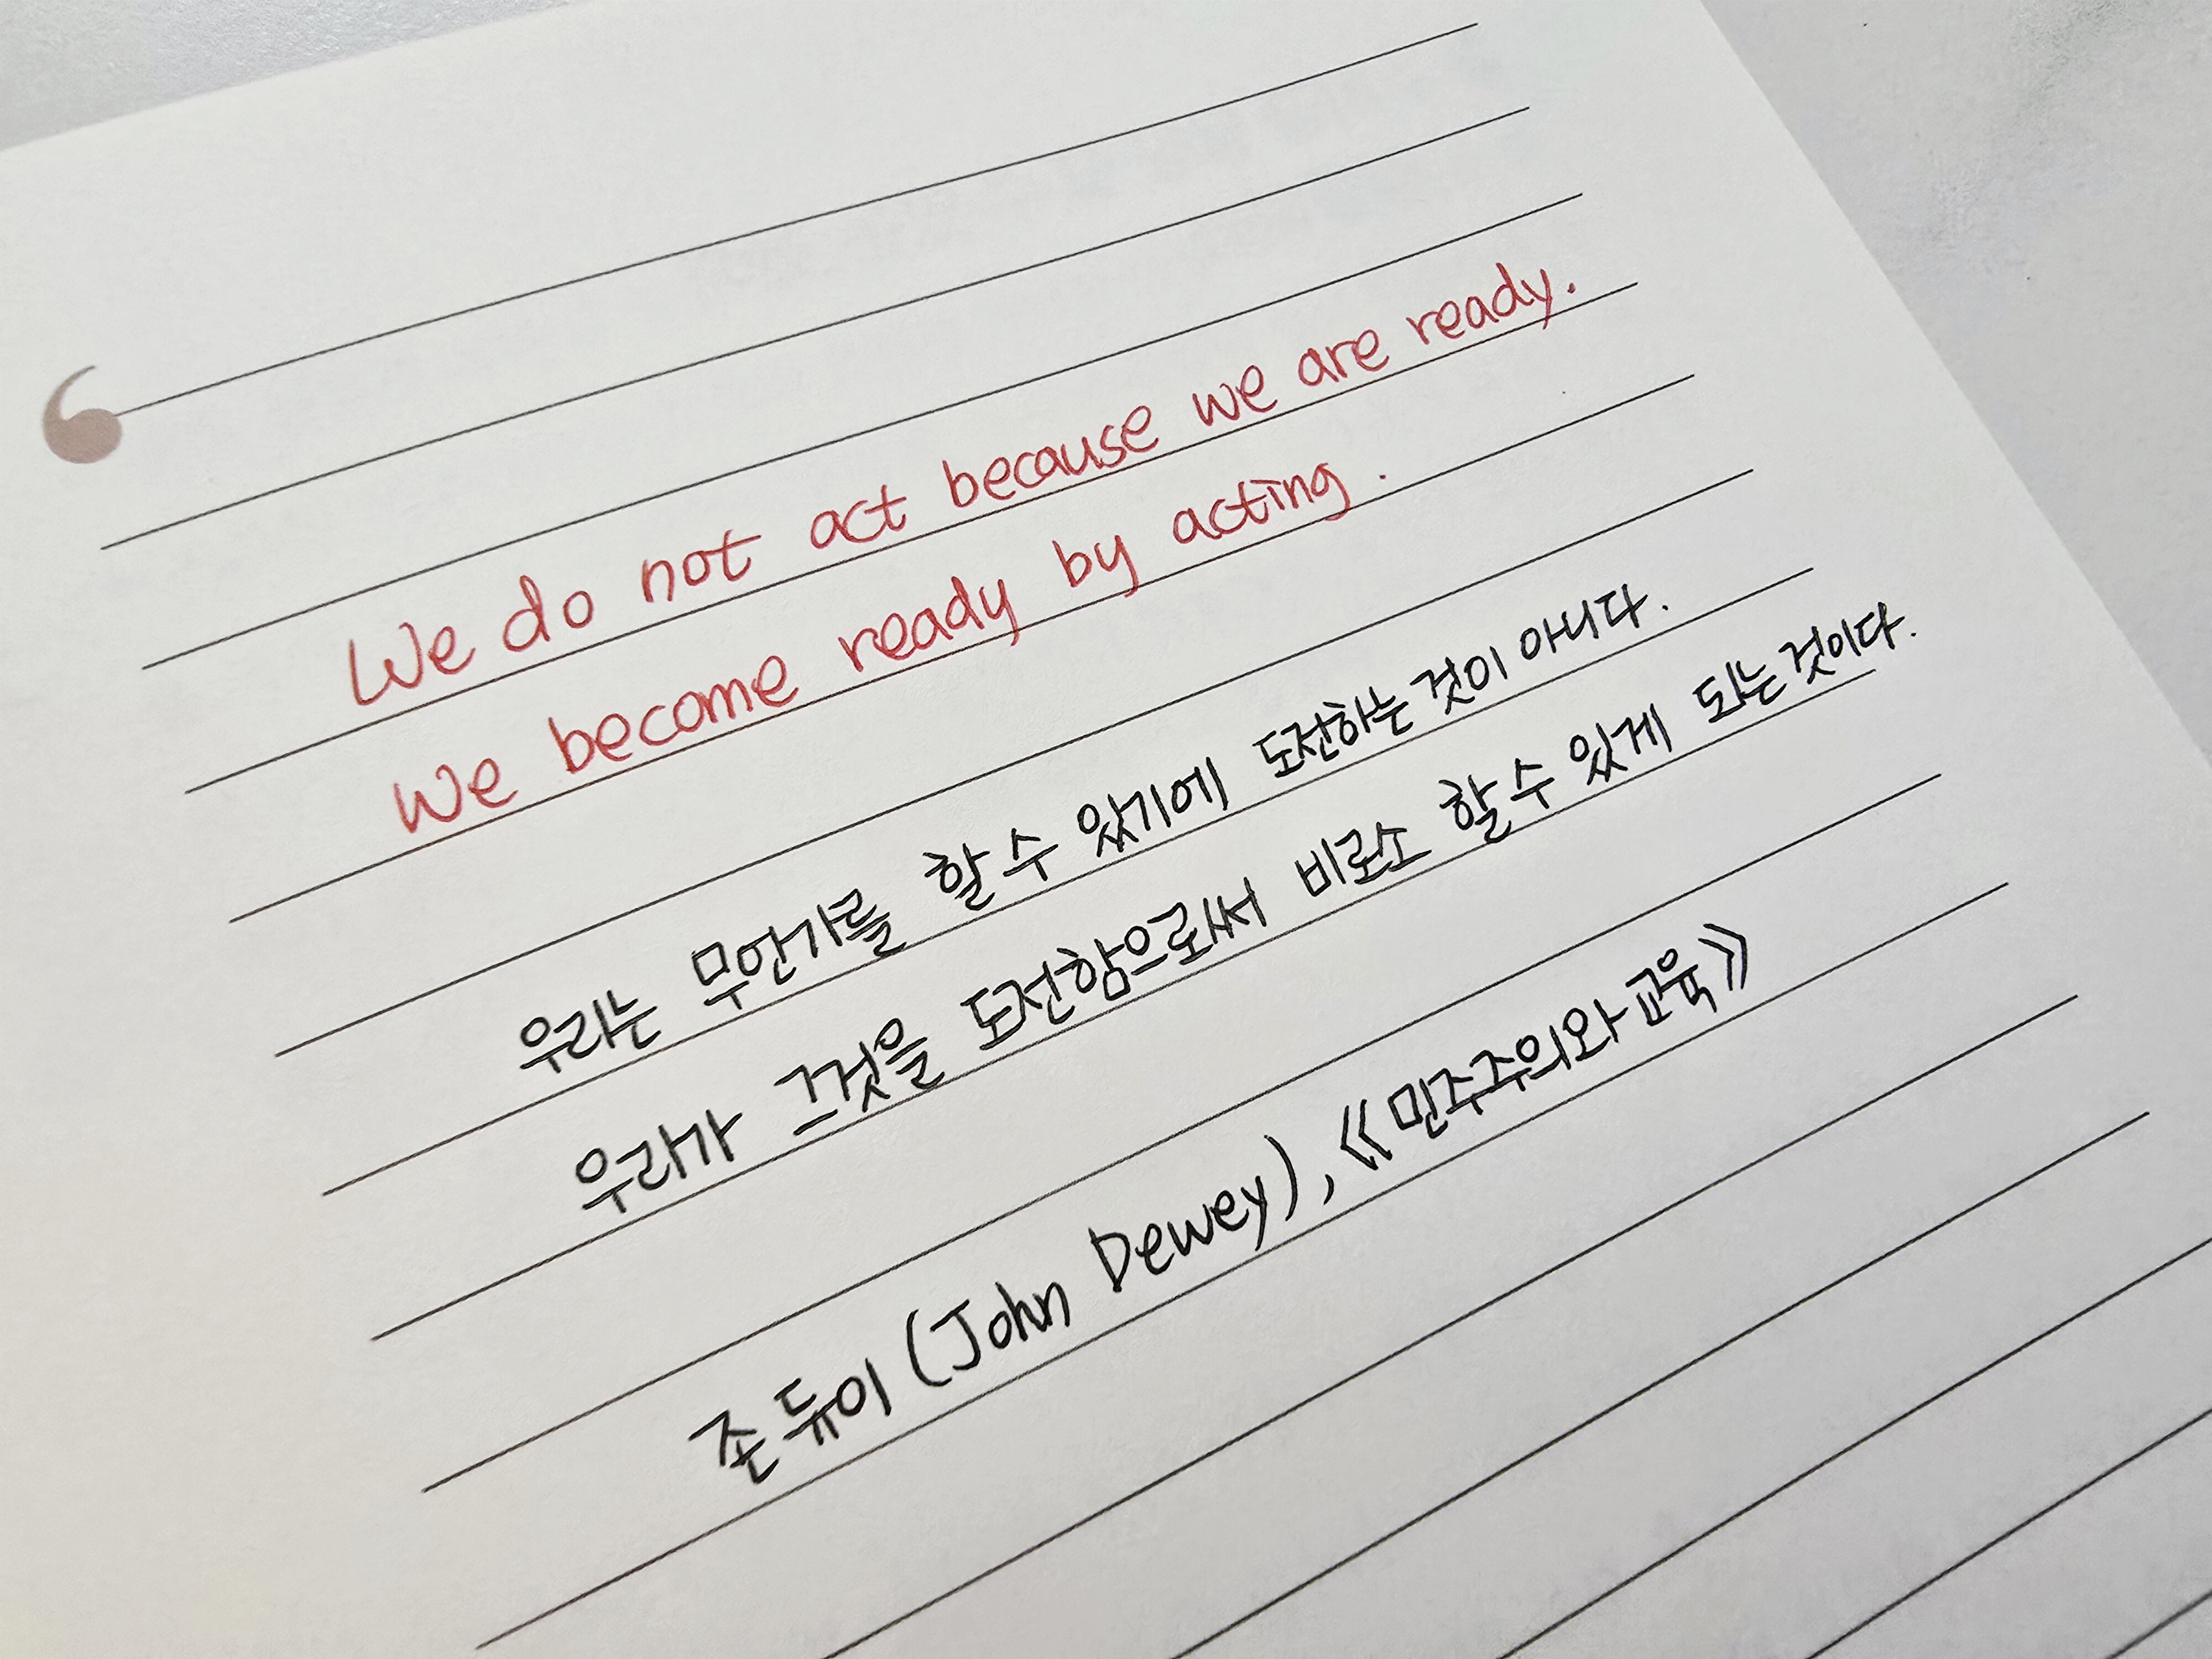 We do not act because we are ready.
We become ready by acting.
우리는 무언가를 할 수 있기에 도전하는 것이 아니다.
우리가 그것을 도전함으로써 비로소 할 수 있게 되는 것이다.
존 듀이 (John Dewey), 《민주주의와 교육》